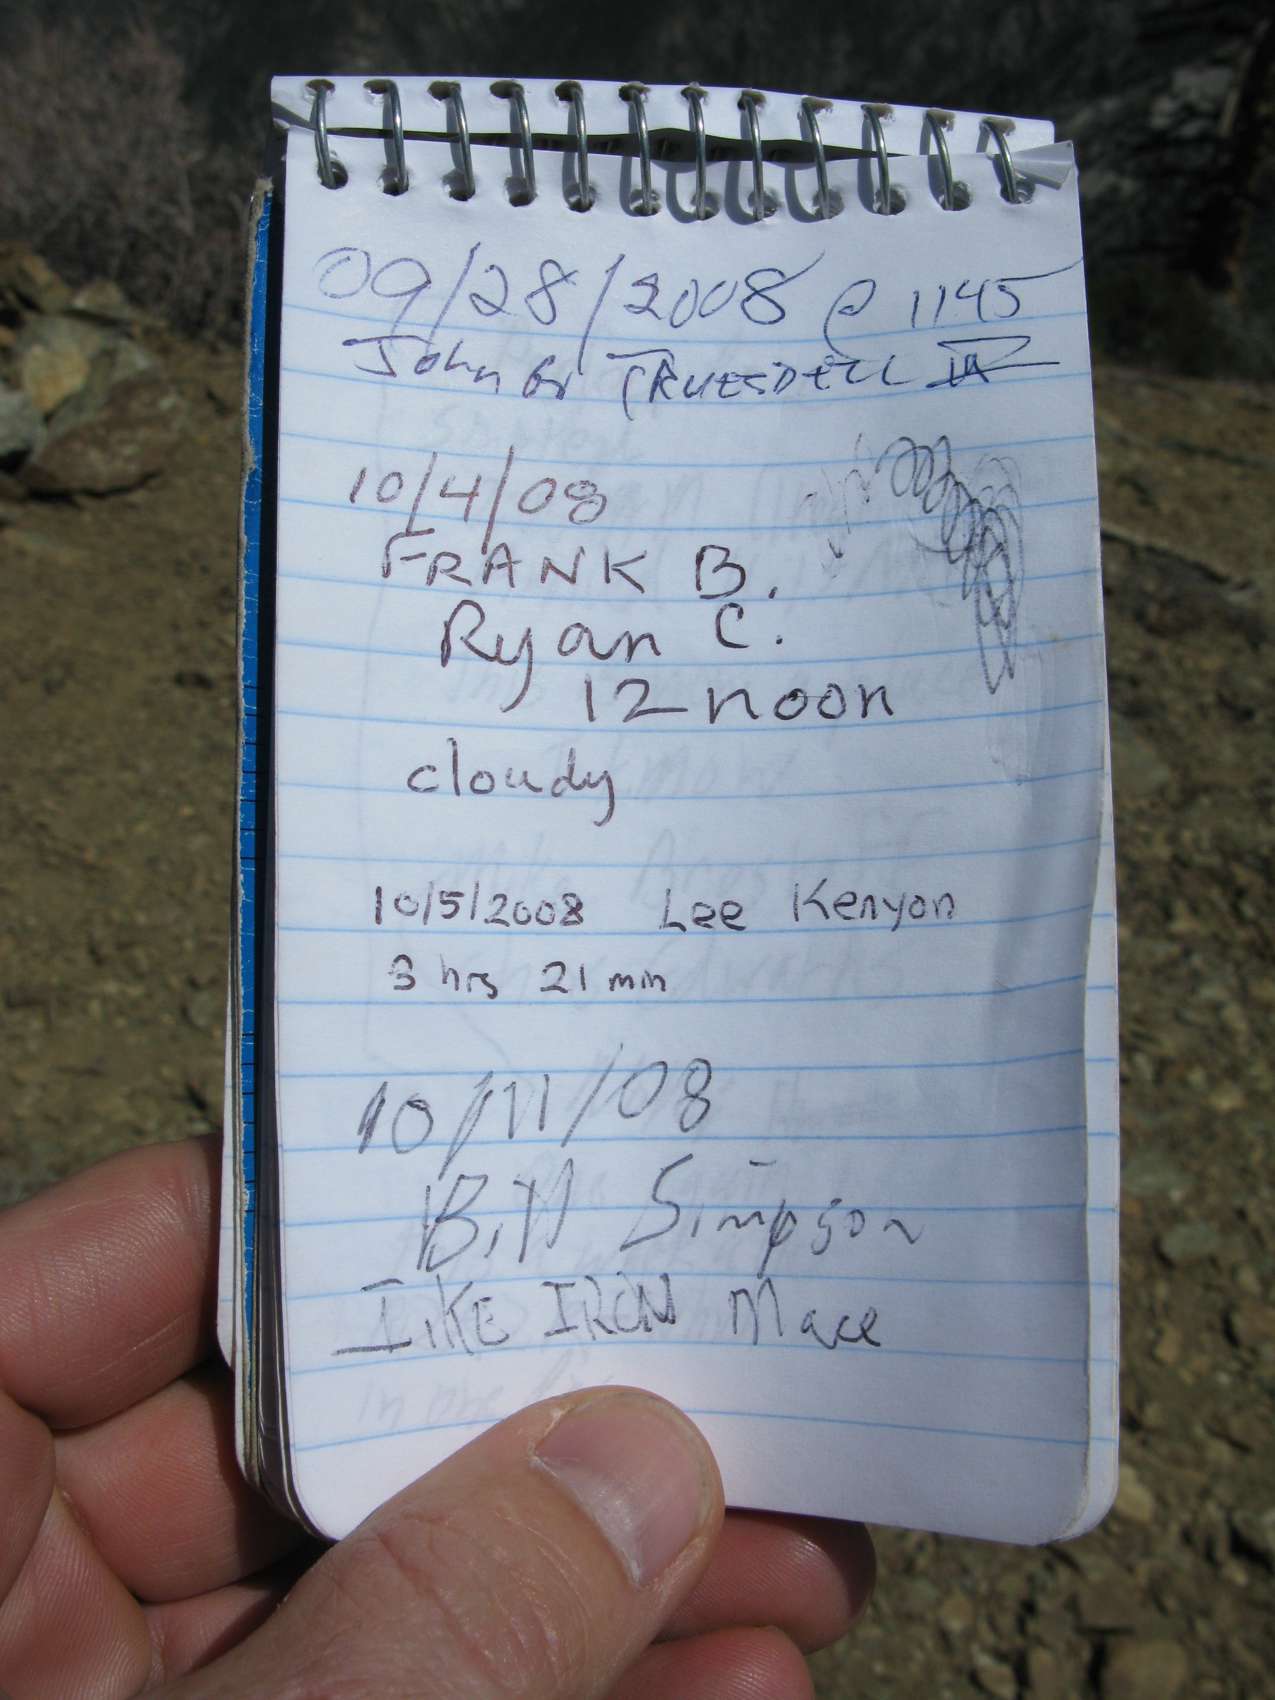 09/28/2008 @ 1145
John TRUESDELL
10/4/08
FRANK B.
Ryan C.
12 noon
cloudy
10/5/2008 Lee Kenyon
3 hrs 21 min
10/11/08
Bill Simpson
IKE IRON Mace